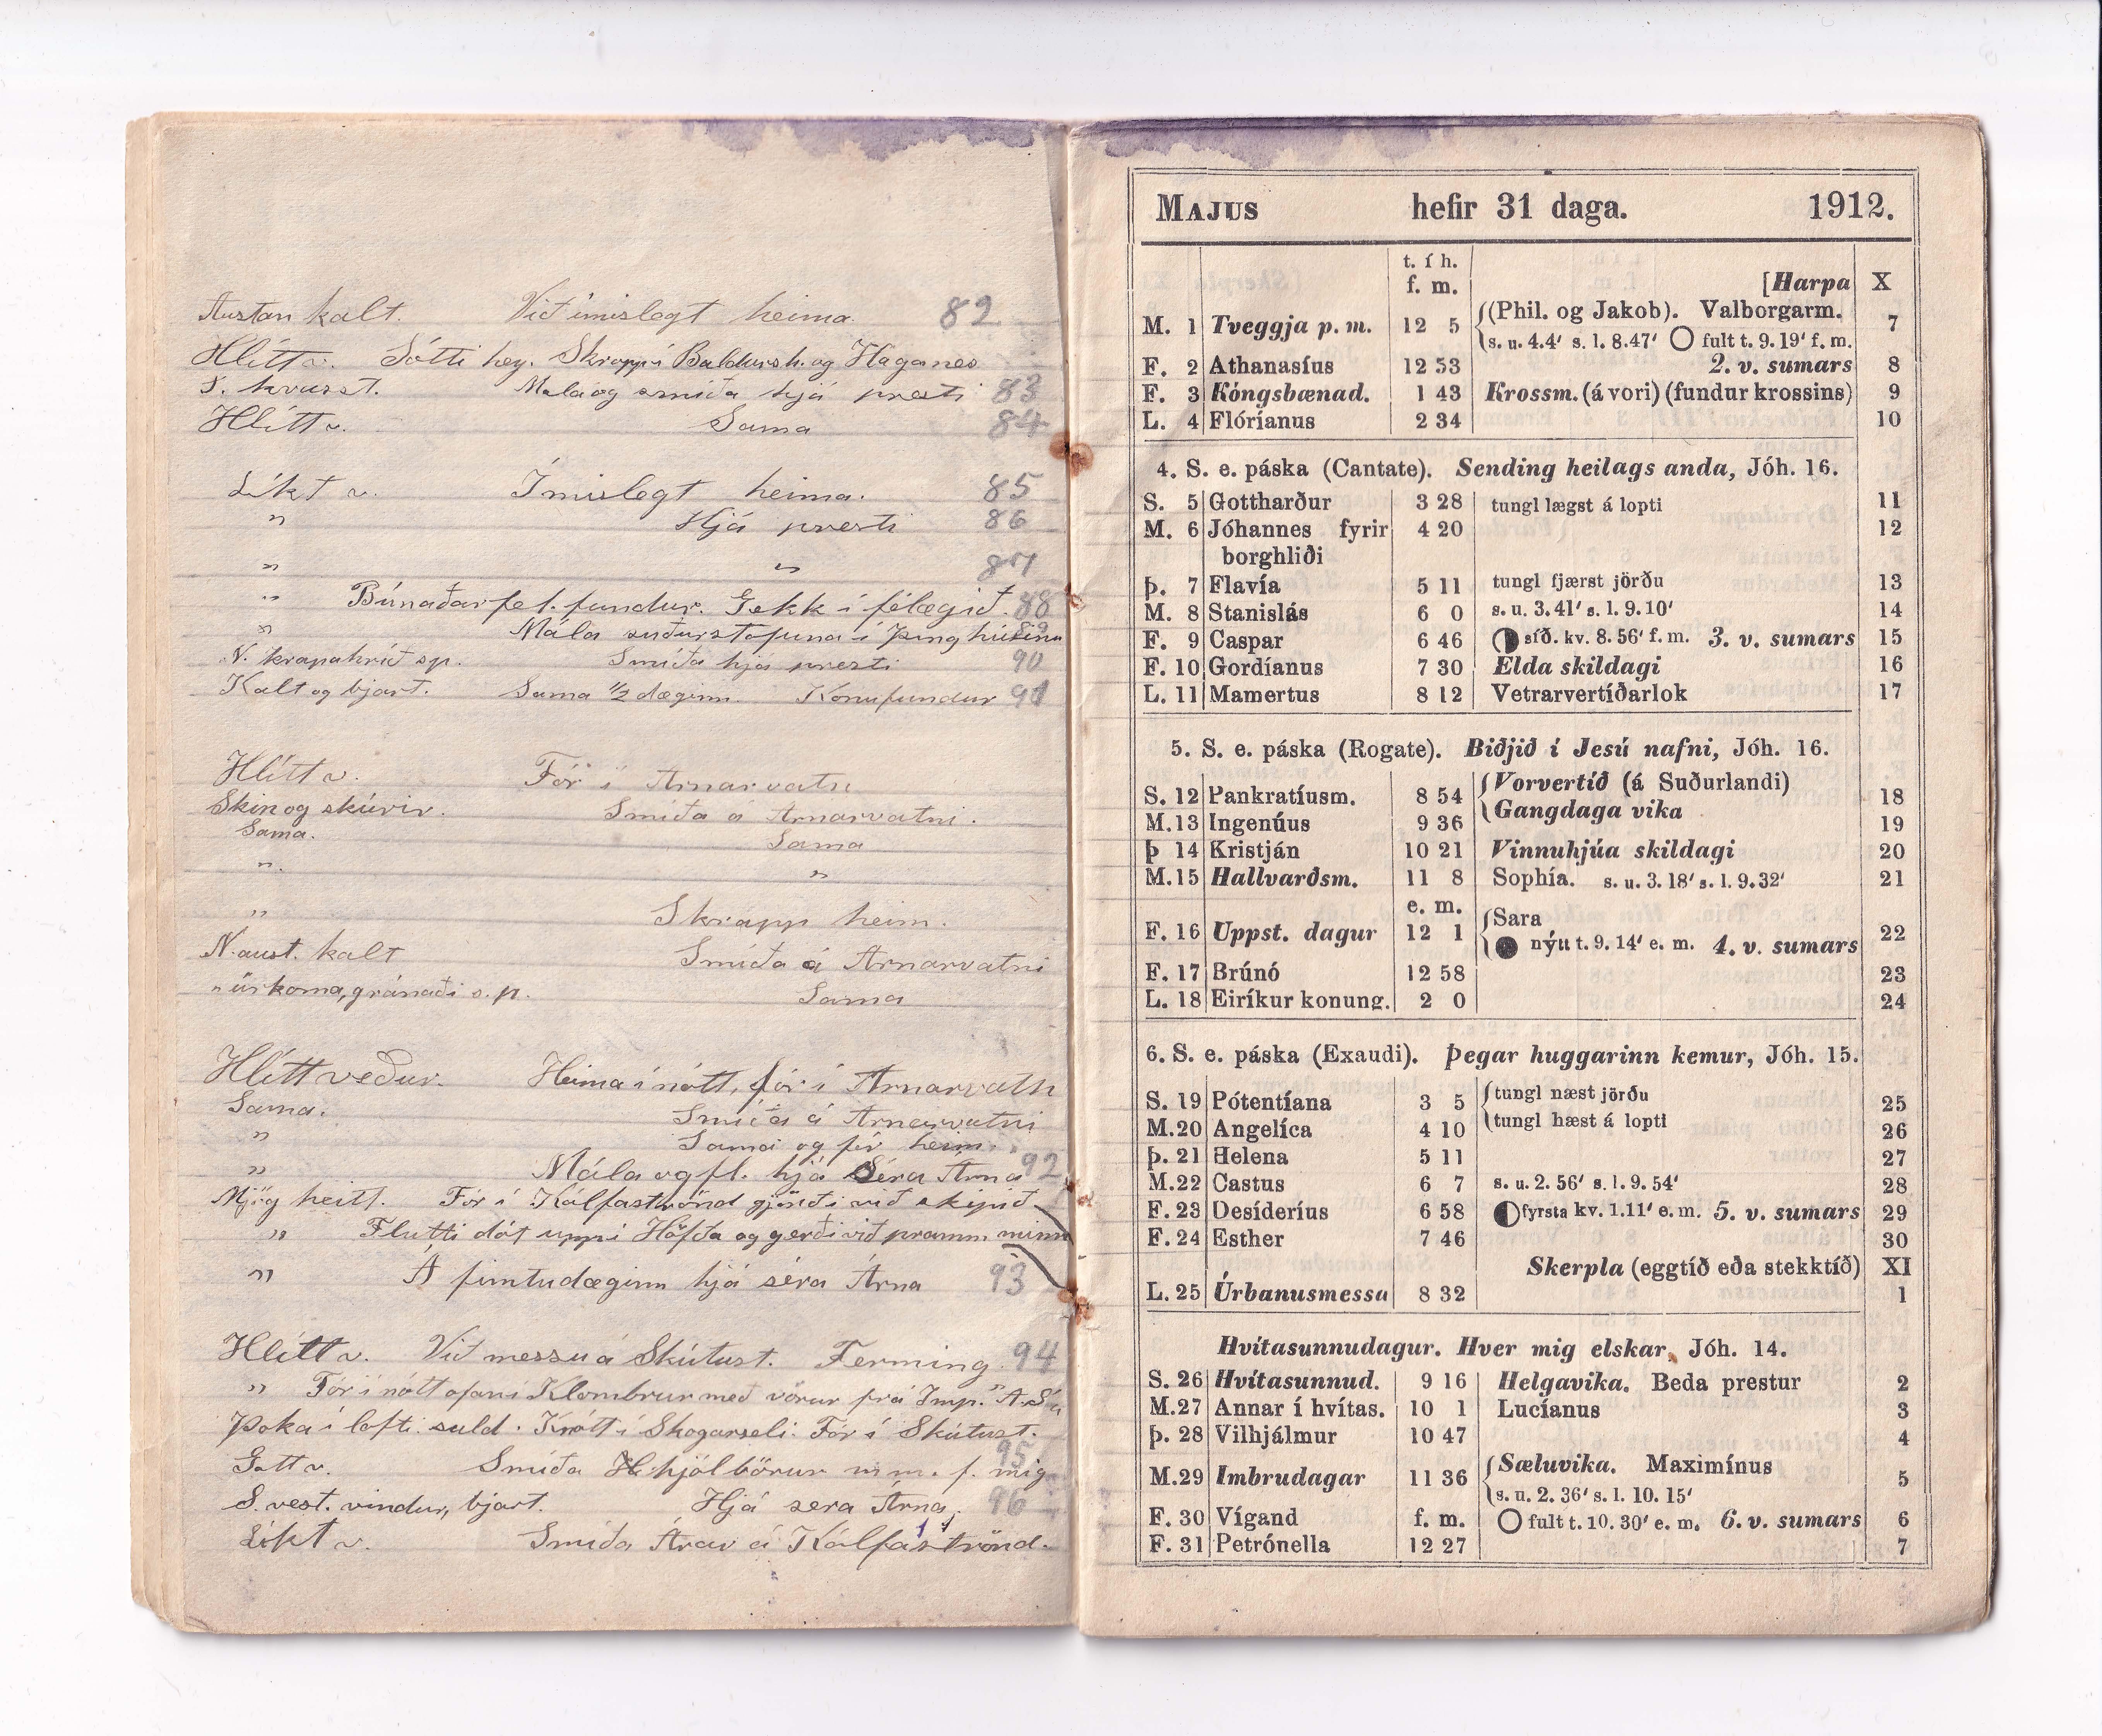 Austan kalt. Við ímislegt heima. 82
Hlítt v. Sótti hey. Skrapp í Baldursh. og Haganes
S. hvasst. Mála og smíða hjá presti 83
Hlítt v. Sama 84
Líkt v. Ímislegt heima. 85
" Hjá presti 86
" " 87
" Búnaðarfel. fundur. Gekk í félagið. 88
" Mála suðurstofuna í Þinghúsinu 89
N. krapahríð sp. Smíða hjá presti 90
Kalt og bjart. Sama 1/2 daginn. Konufundur 91
Hlítt v. Fór í Arnarvatn
Skin og skúrir. Smíða á Arnarvatni.
Sama. Sama
". "
" Skrapp heim.
N.aust. kalt Smíða á Arnarvatni
" úrkoma, gránaði s.p. Sama
Hlítt veður. Heima í nótt, fór í Arnarvatn
Sama. Smíða á Arnarvatni
" Sama og fór heim.
" Mála og fl. hjá Séra Árna 92
Mjög heitt. Fór í Kálfaströnd gjörði við skipið
" Flutti dót uppi Höfða og gerði við pramm minn
" Á fimtudaginn hjá séra Árna 93
Hlítt v. Við messu á Skútust. Ferming. 94
" Fór í nótt ofan í Klömbrur með vörur frá Imp.
Þoka í lofti suld. Í nótt í Skógarseli. Fór í Skútust.
Gott v. Smíða hjólbörur m m. f. mig 95
S.vest. vindur, bjart. Hjá séra Árna. 96
Líkt v. Smíða Árar á Kálfaströnd.
MAJUS hefir 31 daga. 1912.
t. í h.
f. m. [Harpa X
M. 1 Tveggja p. m. 12 5 (Phil. og Jakob). Valborgarm. 7
s. u. 4.4' s. l. 8.47' fult t. 9.19' f. m.
F. 2 Athanasíus 12 53 2. v. sumars 8
F. 3 Kóngsbænad. 1 43 Krossm. (á vori) (fundur krossins) 9
L. 4 Flóríanus 2 34 10
4. S. e. páska (Cantate). Sending heilags anda, Jóh. 16.
S. 5 Gottharður 3 28 tungl lægst á lopti 11
M. 6 Jóhannes fyrir 4 20 12
borghliði
Þ. 7 Flavía 5 11 tungl fjærst jörðu 13
M. 8 Stanislás 6 0 s. u. 3.41' s. l. 9.10' 14
F. 9 Caspar 6 46 síð. kv. 8.56' f. m. 3. v. sumars 15
F. 10 Gordíanus 7 30 Elda skildagi 16
L. 11 Mamertus 8 12 Vetrarvertíðarlok 17
5. S. e. páska (Rogate). Biðjið í Jesú nafni, Jóh. 16.
S. 12 Pankratíusm. 8 54 Vorvertíð (á Suðurlandi) 18
Gangdaga vika
M. 13 Ingenúus 9 36 19
Þ 14 Kristján 10 21 Vinnuhjúa skildagi 20
M. 15 Hallvarðsm. 11 8 Sophía. s. u. 3.18' s. l. 9.32' 21
e. m.
F. 16 Uppst. dagur 12 1 Sara 22
nýtt t. 9.14' e. m. 4. v. sumars
F. 17 Brúnó 12 58 23
L. 18 Eiríkur konung. 2 0 24
6. S. e. páska (Exaudi). Þegar huggarinn kemur, Jóh. 15.
S. 19 Pótentíana 3 5 tungl næst jörðu 25
tungl hæst á lopti
M. 20 Angelíca 4 10 26
Þ. 21 Helena 5 11 27
M. 22 Castus 6 7 s. u. 2.56' s. l. 9.54' 28
F. 23 Desíderíus 6 58 fyrsta kv. 1.11' e. m. 5. v. sumars 29
F. 24 Esther 7 46 30
Skerpla (eggtíð eða stekktíð) XI
L. 25 Úrbanusmessa 8 32 1
Hvítasunnudagur. Hver mig elskar, Jóh. 14.
S. 26 Hvítasunnud. 9 16 Helgavika. Beda prestur 2
M. 27 Annar í hvítas. 10 1 Lucíanus 3
Þ. 28 Vilhjálmur 10 47 4
M. 29 Imbrudagar 11 36 Sæluvika. Maximínus 5
s. u. 2.36' s. l. 10.15'
F. 30 Vígand f. m. fult t. 10.30' e. m. 6. v. sumars 6
F. 31 Petrónella 12 27 7